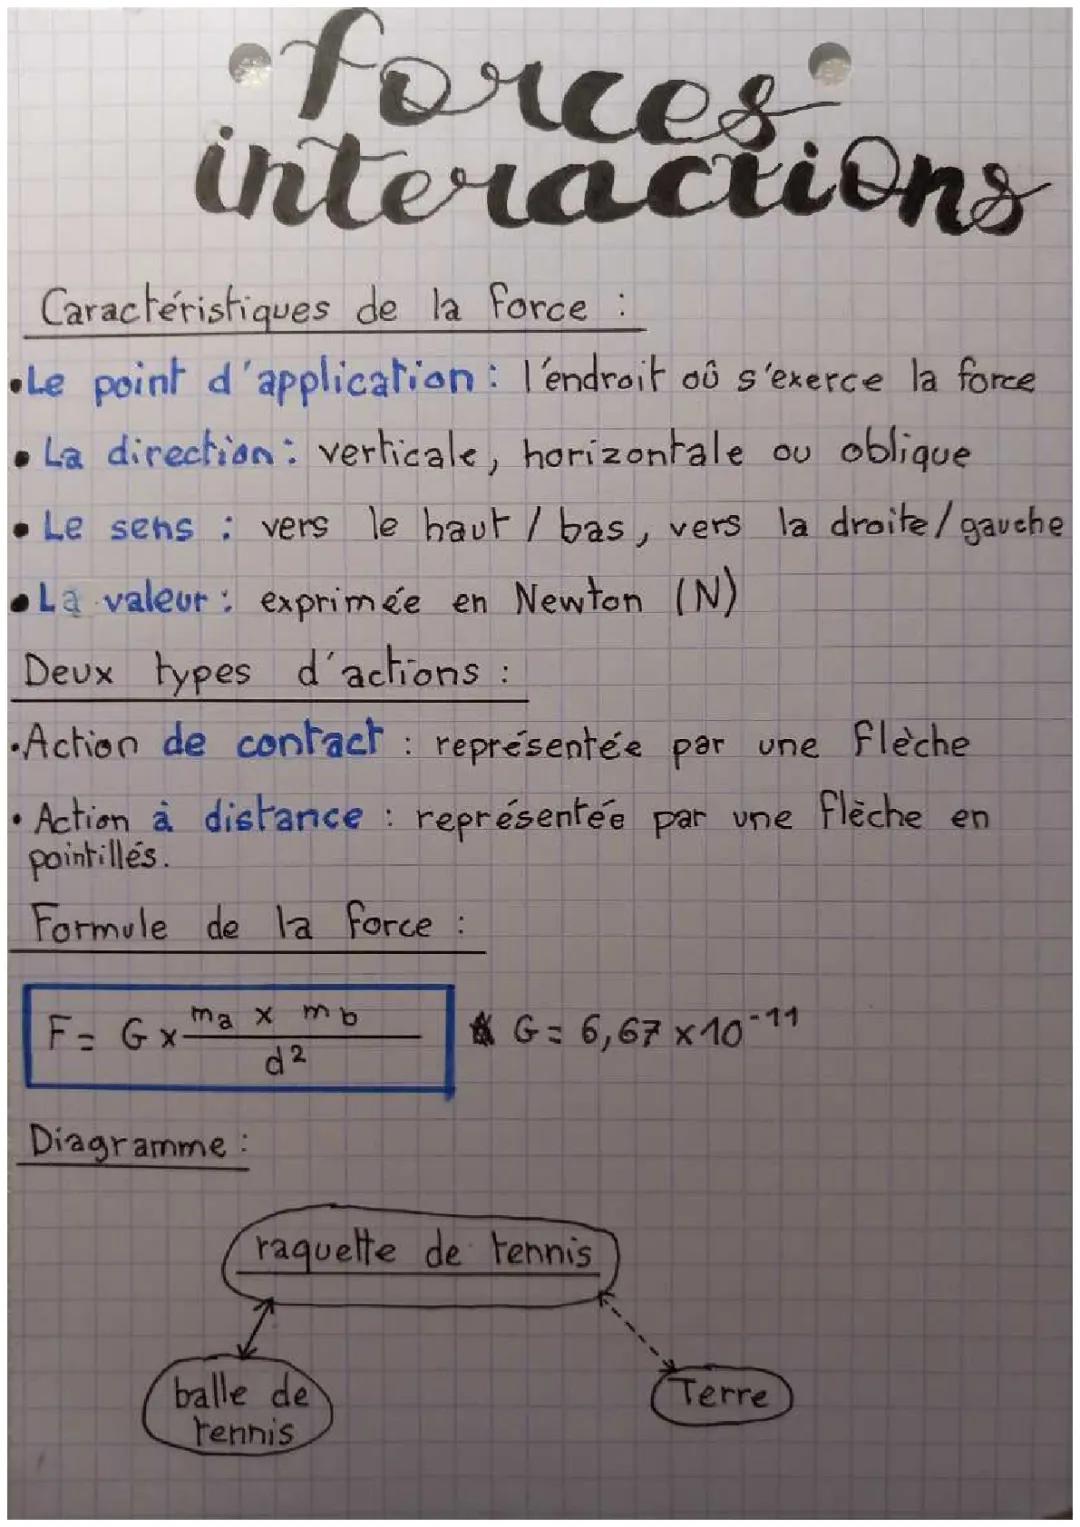 forces
interactions
Caractéristiques de la force :
•Le point d'application : l'éndroit oû s'exerce la force
• La direction : verticale, horizontale ou oblique
• Le sens : vers le haut / bas, vers la droite / gauche
• La valeur : exprimée en Newton (N)
Deux types d'actions :
•Action de contact : représentée par une flèche
• Action à distance : représentée par une flèche en
pointillés.
Formule de la force :
F = G × ma × mb / d²
G = 6,67 × 10⁻¹¹
Diagramme :
raquette de tennis
balle de
tennis
Terre